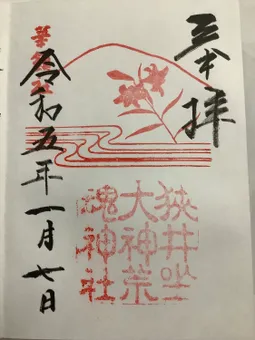 奉拝
狹井坐
大神荒
魂神社
令和五年一月七日